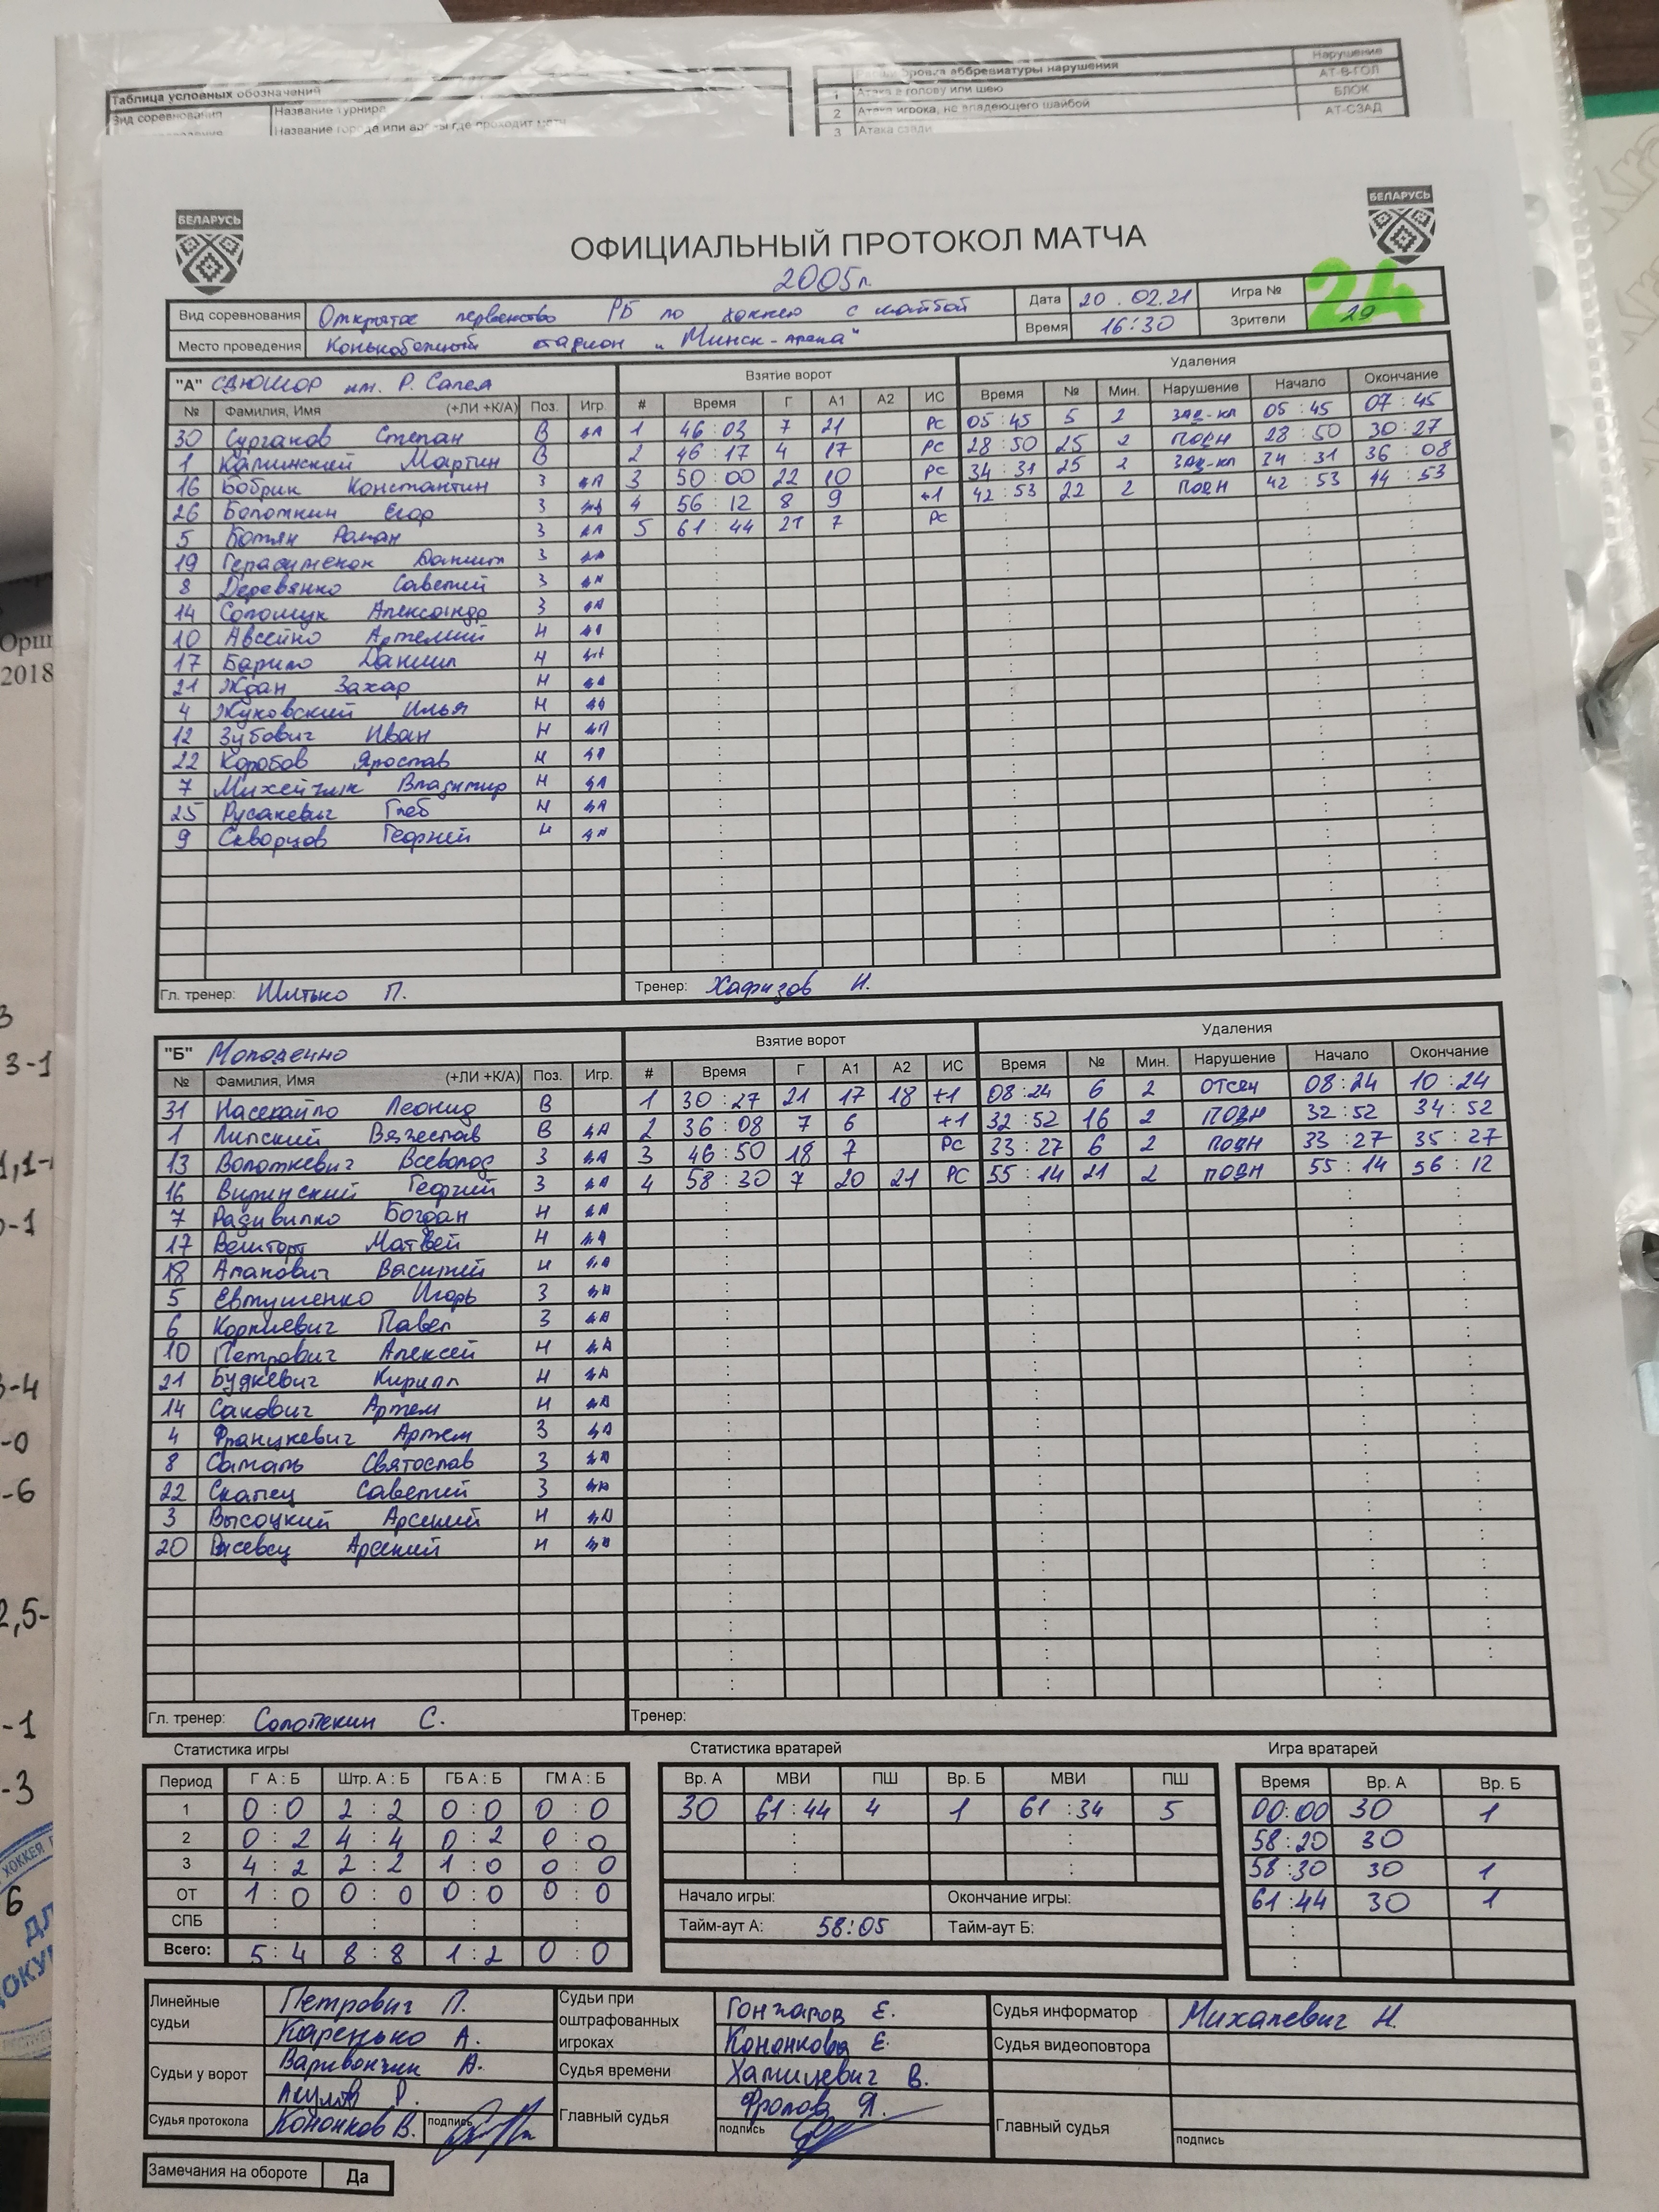 Таблица условных обозначений
Вид соревнования Название турнира
Расшифровка аббревиатуры нарушения Нарушение
1 Атака в голову или шею АТ-В-ГОЛ
2 Атака игрока, не владеющего шайбой БЛОК
3 Атака сзади АТ-СЗАД
БЕЛАРУСЬ
БЕЛАРУСЬ
ОФИЦИАЛЬНЫЙ ПРОТОКОЛ МАТЧА
2005г.
Вид соревнования Открытое первенство РБ по хоккею с шайбой Дата 20.02.21 Игра № 24
Место проведения Конькобежный стадион "Минск-арена" Время 16:30 Зрители 29
"А" СДЮШОР им. Р. Салея Взятие ворот Удаления
№ Фамилия, Имя (+ЛИ +К/А) Поз. Игр. # Время Г А1 А2 ИС Время № Мин. Нарушение Начало Окончание
30 Сурганов Степан В ДА 1 46:03 7 21 РС 05:45 5 2 ЗАД-КЛ 05:45 07:45
1 Калинский Мартин В 2 46:17 4 17 РС 28:50 25 2 ПОДН 28:50 30:27
16 Бобрик Константин З ДА 3 50:00 22 10 РС 34:31 25 2 ЗАД-КЛ 34:31 36:08
26 Болоткин Егор З ДА 4 56:12 8 9 +1 42:53 22 2 ПОДН 42:53 44:53
5 Ботян Роман З ДА 5 61:44 21 7 РС
19 Герасименок Даниил З ДА
8 Деревянко Савелий З ДА
14 Соломук Александр З ДА
10 Авсейко Артемий Н ДА
17 Барило Даниил Н ДА
21 Ждан Захар Н ДА
4 Жуковский Илья Н ДА
12 Зубович Иван Н ДА
22 Коробов Ярослав Н ДА
7 Михейчик Владимир Н ДА
25 Русакевич Глеб Н ДА
9 Скворцов Георгий Н ДА
Гл. тренер: Шитько П. Тренер: Хафизов Н.
"Б" Молодечно Взятие ворот Удаления
№ Фамилия, Имя (+ЛИ +К/А) Поз. Игр. # Время Г А1 А2 ИС Время № Мин. Нарушение Начало Окончание
31 Насекайло Леонид В 1 30:27 21 17 18 +1 08:24 6 2 ОТСЕЧ 08:24 10:24
1 Липский Вячеслав В ДА 2 36:08 7 6 +1 32:52 16 2 ПОДН 32:52 34:52
13 Волоткевич Всеволод З ДА 3 46:50 18 7 РС 33:27 6 2 ПОДН 33:27 35:27
16 Виринский Георгий З ДА 4 58:30 7 20 21 РС 55:14 21 2 ПОДН 55:14 56:12
7 Радивилко Богдан Н ДА
17 Вешторт Матвей Н ДА
18 Апанович Василий Н ДА
5 Евтушенко Игорь З ДА
6 Корниевич Павел З ДА
10 Петрович Алексей Н ДА
21 Будкевич Кирилл Н ДА
14 Сакович Артем Н ДА
4 Францкевич Артем З ДА
8 Саталь Святослав З ДА
22 Скапец Савелий З ДА
3 Высоцкий Арсений Н ДА
20 Арсений Н ДА
Гл. тренер: Солопекин С. Тренер:
Статистика игры Статистика вратарей Игра вратарей
Период Г А : Б Штр. А : Б ГБ А : Б ГМ А : Б Вр. А МВИ ПШ Вр. Б МВИ ПШ Время Вр. А Вр. Б
1 0:0 2:2 0:0 0:0 30 61:44 4 1 61:34 5 00:00 30 1
2 0:2 4:4 0:2 0:0 58:20 30
3 4:2 2:2 1:0 0:0 58:30 30 1
ОТ 1:0 0:0 0:0 0:0 Начало игры: Окончание игры: 61:44 30 1
СПБ Тайм-аут А: 58:05 Тайм-аут Б:
Всего: 5:4 8:8 1:2 0:0
Линейные судьи Петрович П. Каренько А.
Судьи при оштрафованных игроках Гончаров Е. Кононкова Е.
Судья информатор Михалевич Н.
Судья видеоповтора
Судьи у ворот Варивончик А. Акулов Р.
Судья времени Хамицевич В.
Судья протокола Кононков В. подпись
Главный судья Фролов Я. подпись
Главный судья подпись
Замечания на обороте Да